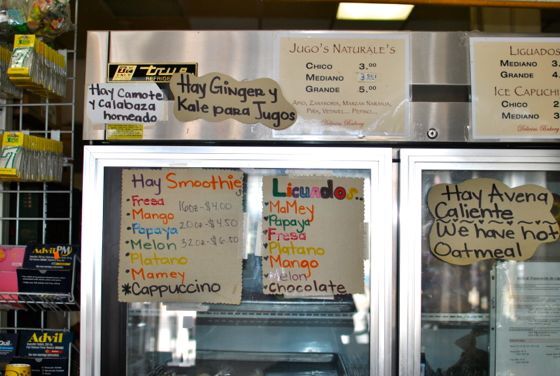 true
REFRIGE
Hay Camote
y calabaza
horneado
Hay Ginger y
Kale para Jugos
Jugo's Naturale's
Chico 3.00
Mediano
Grande 5.00
Apio, Zanahoria, Manzan Naranja,
Delicias Bakery
Liguados
Mediano 3.
Grande 4.
Ice Capuchi
Chico 2.
Mediano 3.
Delicias Bakery
Hay Smoothies
Fresa
Mango 16oz-$4.00
Papaya 20oz-$4.50
Melon 32oz-$6.00
Platano
Mamey
*Cappuccino
Licuados..
Mamey
Papaya
Fresa
Platano
Mango
Melon
Chocolate
Hay Avena
Caliente
We have hot
Oatmeal
Advil PM
Advil